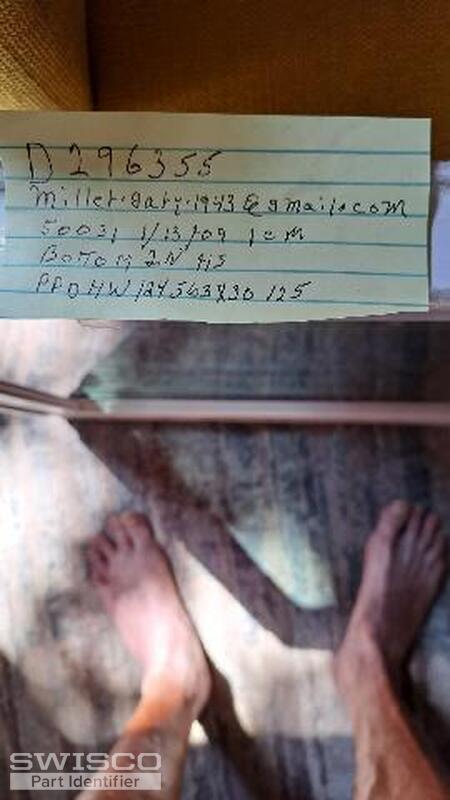 D296355
millet.gary.1943@gmail.com
50031 1/13/09 1 cm
PPDHW124563830 125
SWISCO
Part Identifier